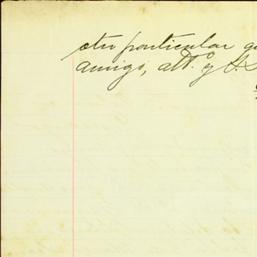 otro particular
amigo, att.º y S.